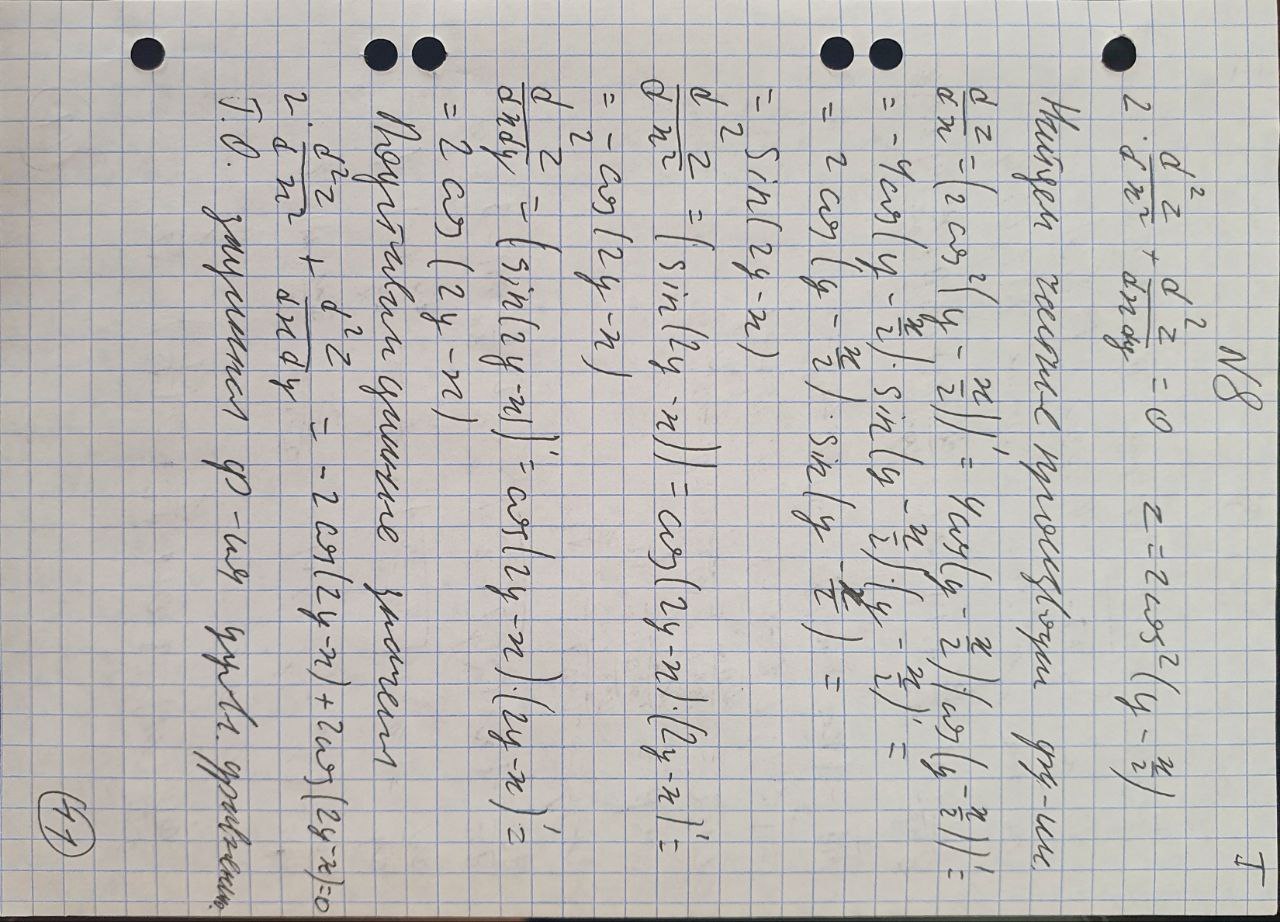 N8
I
2 · d²z/dx² + d²z/dxdy = 0 z = 2cos²(y - x/2)
Найдем частные производн фу-ии.
dz/dx = (2cos²(y - x/2))' = 4cos(y - x/2)·(cos(y - x/2))' =
= -4cos(y - x/2)·sin(y - x/2)·(y - x/2)' =
= 2cos(y - x/2)·sin(y - x/2) =
= sin(2y-x)
d²z/dx² = (sin(2y-x)) = cos(2y-x)·(2y-x)' =
= -cos(2y-x)
d²z/dxdy = (sin(2y-x))' = cos(2y-x)·(2y-x)' =
= 2cos(2y-x)
Подставим данные значения
2 · d²z/dx² + d²z/dxdy = -2cos(2y-x)+2cos(2y-x)=0
Т.О. заданная ф-ия удвл. уравнению.
11